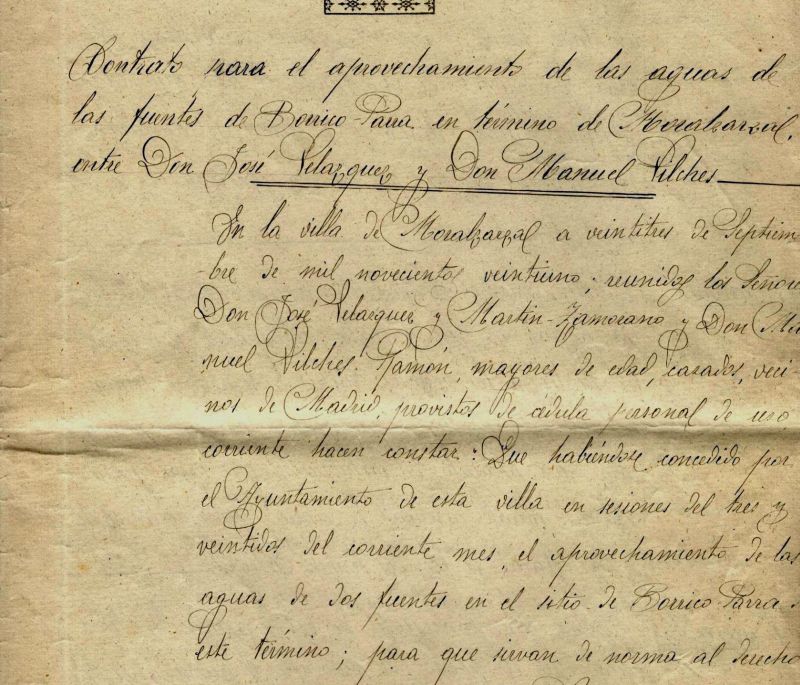 Contrato para el aprovechamiento de las aguas de
las fuentes de Borrico-Parra en término de Moralzarzal,
entre Don José Velazquez y Don Manuel Vilches
En la villa de Moralzarzal a veintitres de Septiem-
-bre de mil novecientos veintiuno; reunidos los Señore
Don José Velazquez y Martin-Zamorano y Don Ma
nuel Vilches Ramón, mayores de edad, casados, veci
nos de Madrid, provistos de cédula personal de uso
corriente hacen constar: Que habiéndose concedido por
el Ayuntamiento de esta villa en sesiones del tres y
veintidos del corriente mes, el aprovechamiento de las
aguas de dos fuentes en el sitio de Borrico-Parra
este término; para que sirvan de norma al derecho